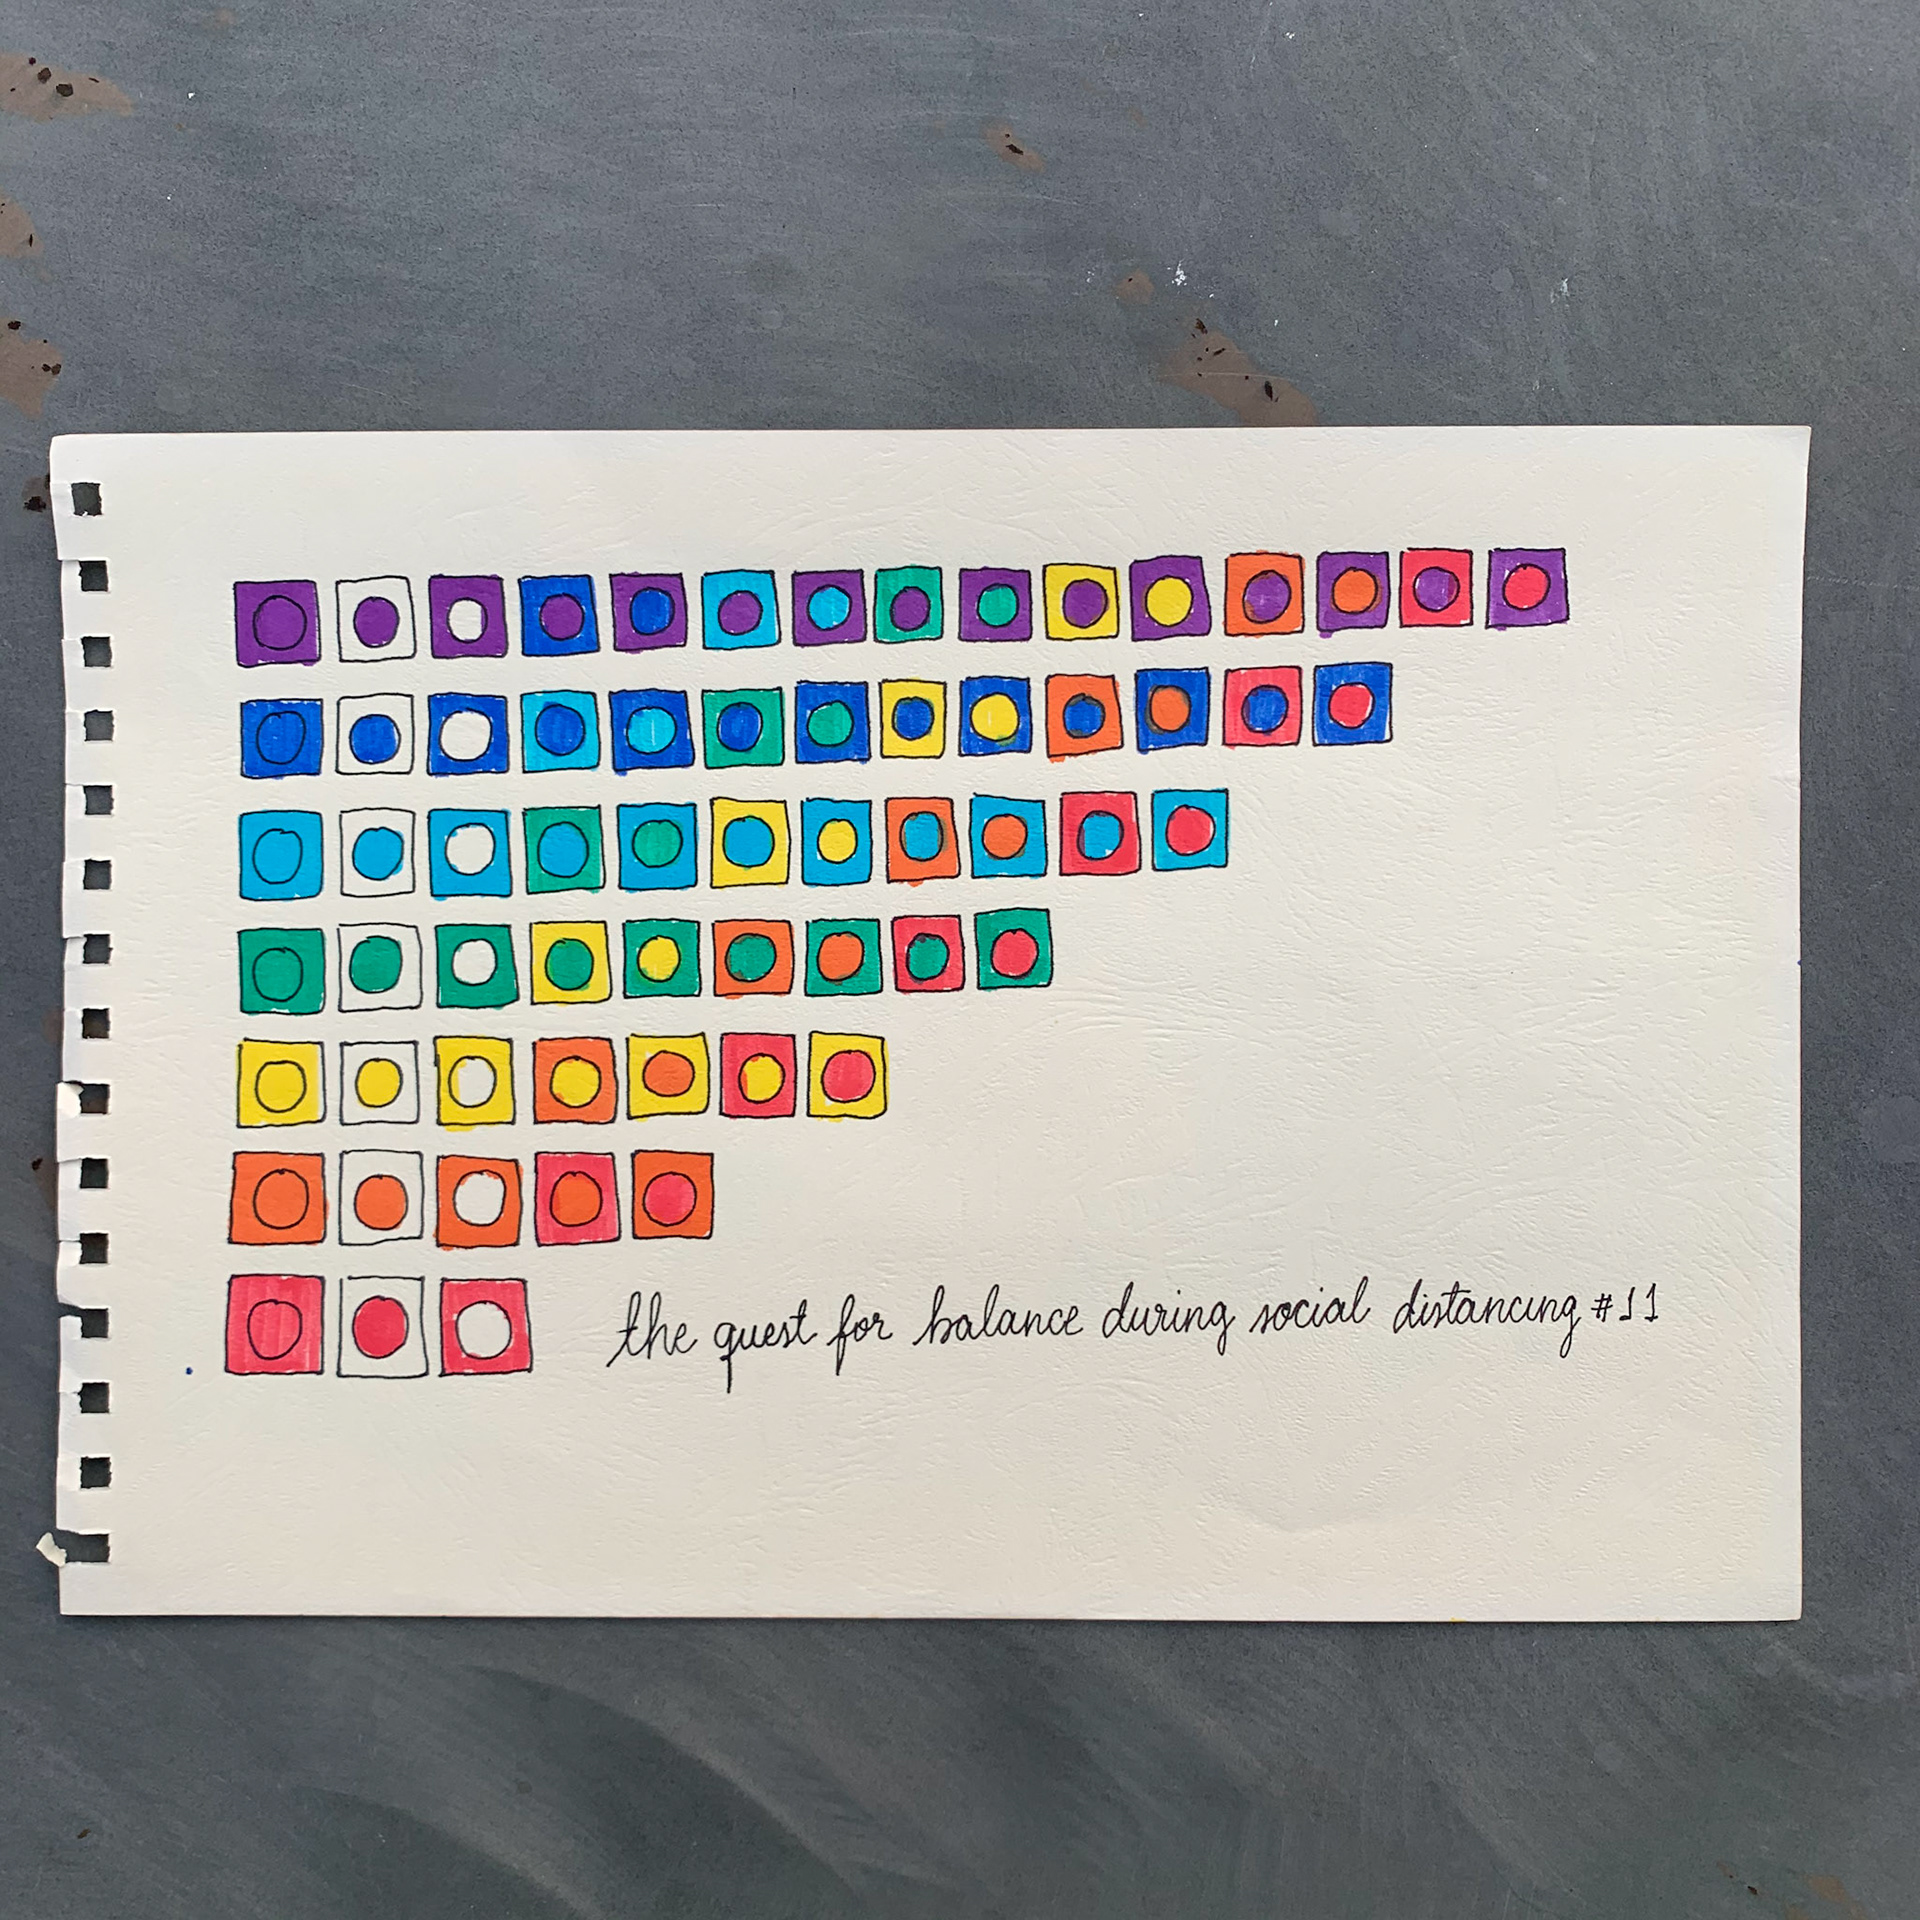 the quest for balance during social distancing #11